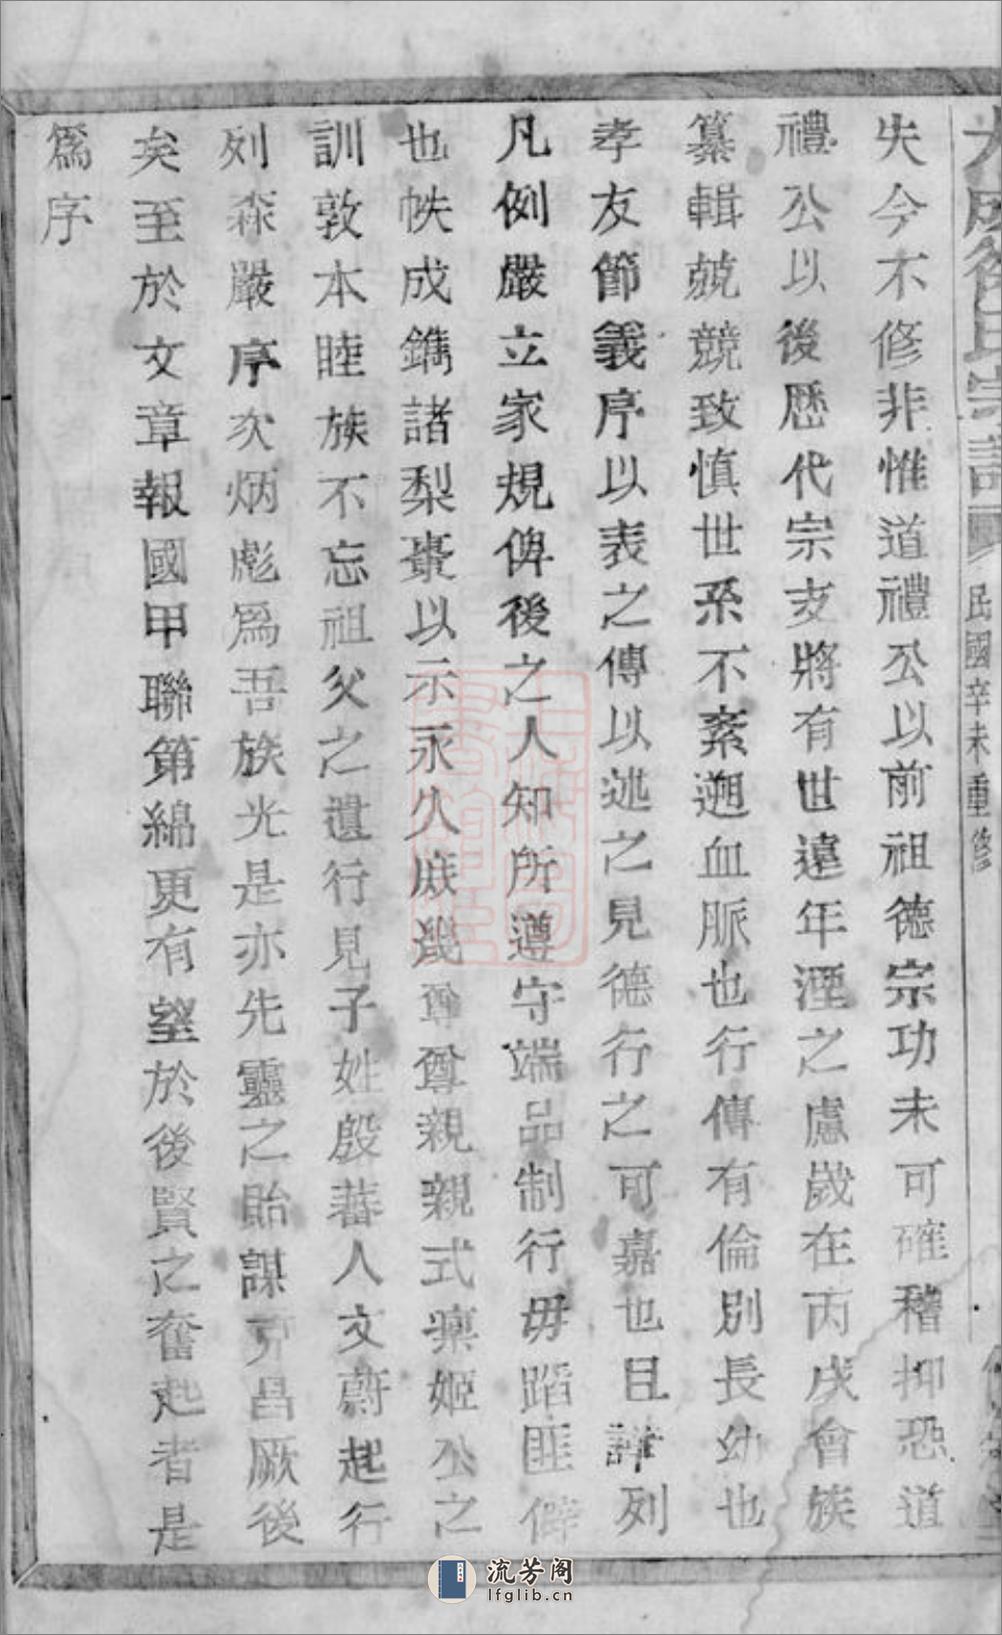 氏宗譜 民國辛未重修
失今不修非惟道禮公以前祖德宗功未可確稽抑恐道
禮公以後歷代宗支將有世遠年湮之慮歲在丙戌會族
纂輯兢競致慎世系不紊遡血脈也行傳有倫別長幼也
孝友節義序以表之傳以述之見德行之可嘉也且譜列
凡例嚴立家規俾後之人知所遵守端品制行毋蹈匪僻
也帙成鐫諸梨棗以示永久庶幾尊尊親親式稟姬公之
訓敦本睦族不忘祖父之遺行見子姓殷蕃人文蔚起行
列森嚴序次炳彪爲吾族光是亦先靈之貽謀克昌厥後
矣至於文章報國甲聯第綿更有望於後賢之奮起者是
爲序
流芳阁
lfglib.cn